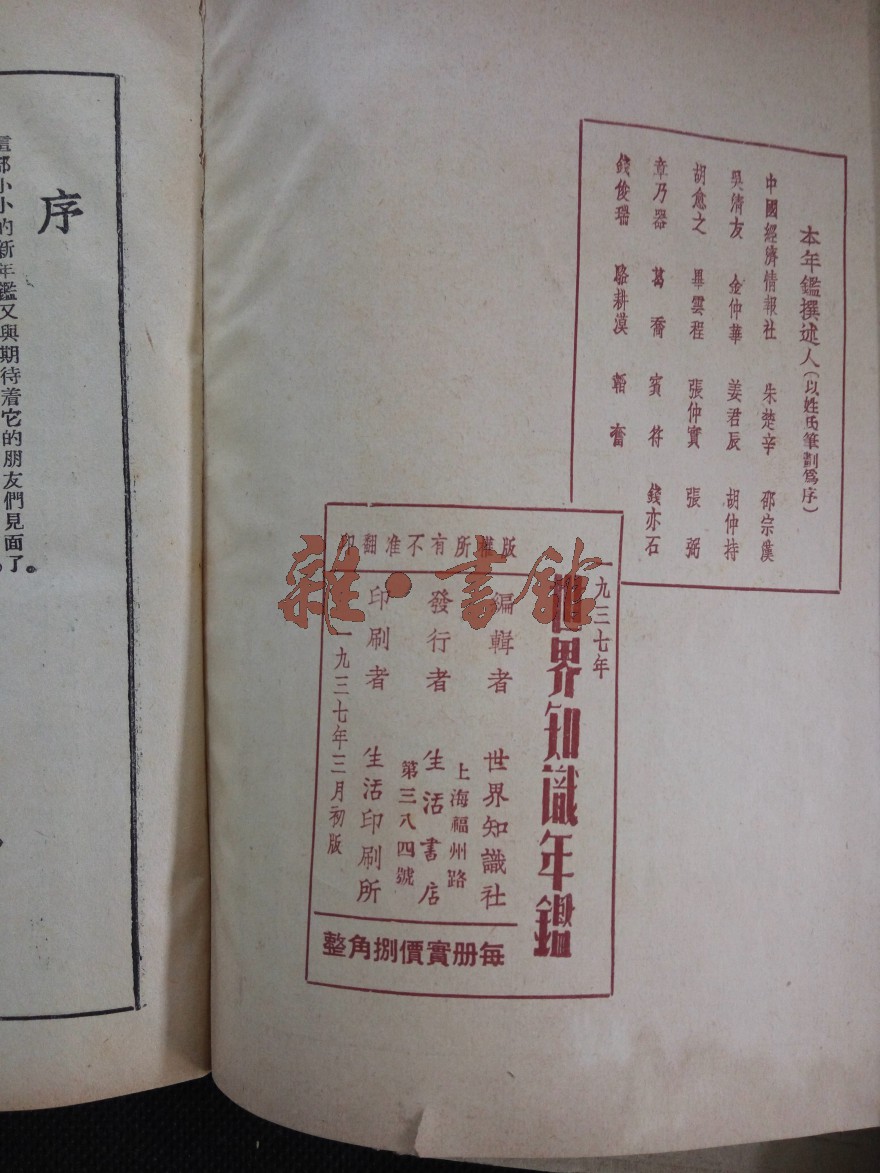 本年鑑撰述人(以姓氏筆劃爲序)
中國經濟情報社 朱楚辛 邵宗漢
吳清友 金仲華 姜君辰 胡仲持
胡愈之 畢雲程 張仲實 張弼
章乃器 葛喬 賓符 錢亦石
錢俊瑞 駱耕漠 韜奮
一九三七年
世界知識年鑑
版權所有不准翻印
編輯者 世界知識社
上海福州路
發行者 生活書店
第三八四號
印刷者 生活印刷所
一九三七年三月初版
每册實價捌角整
雜·書館
序
這部小小的新年鑑又與期待着它的朋友們見面了。